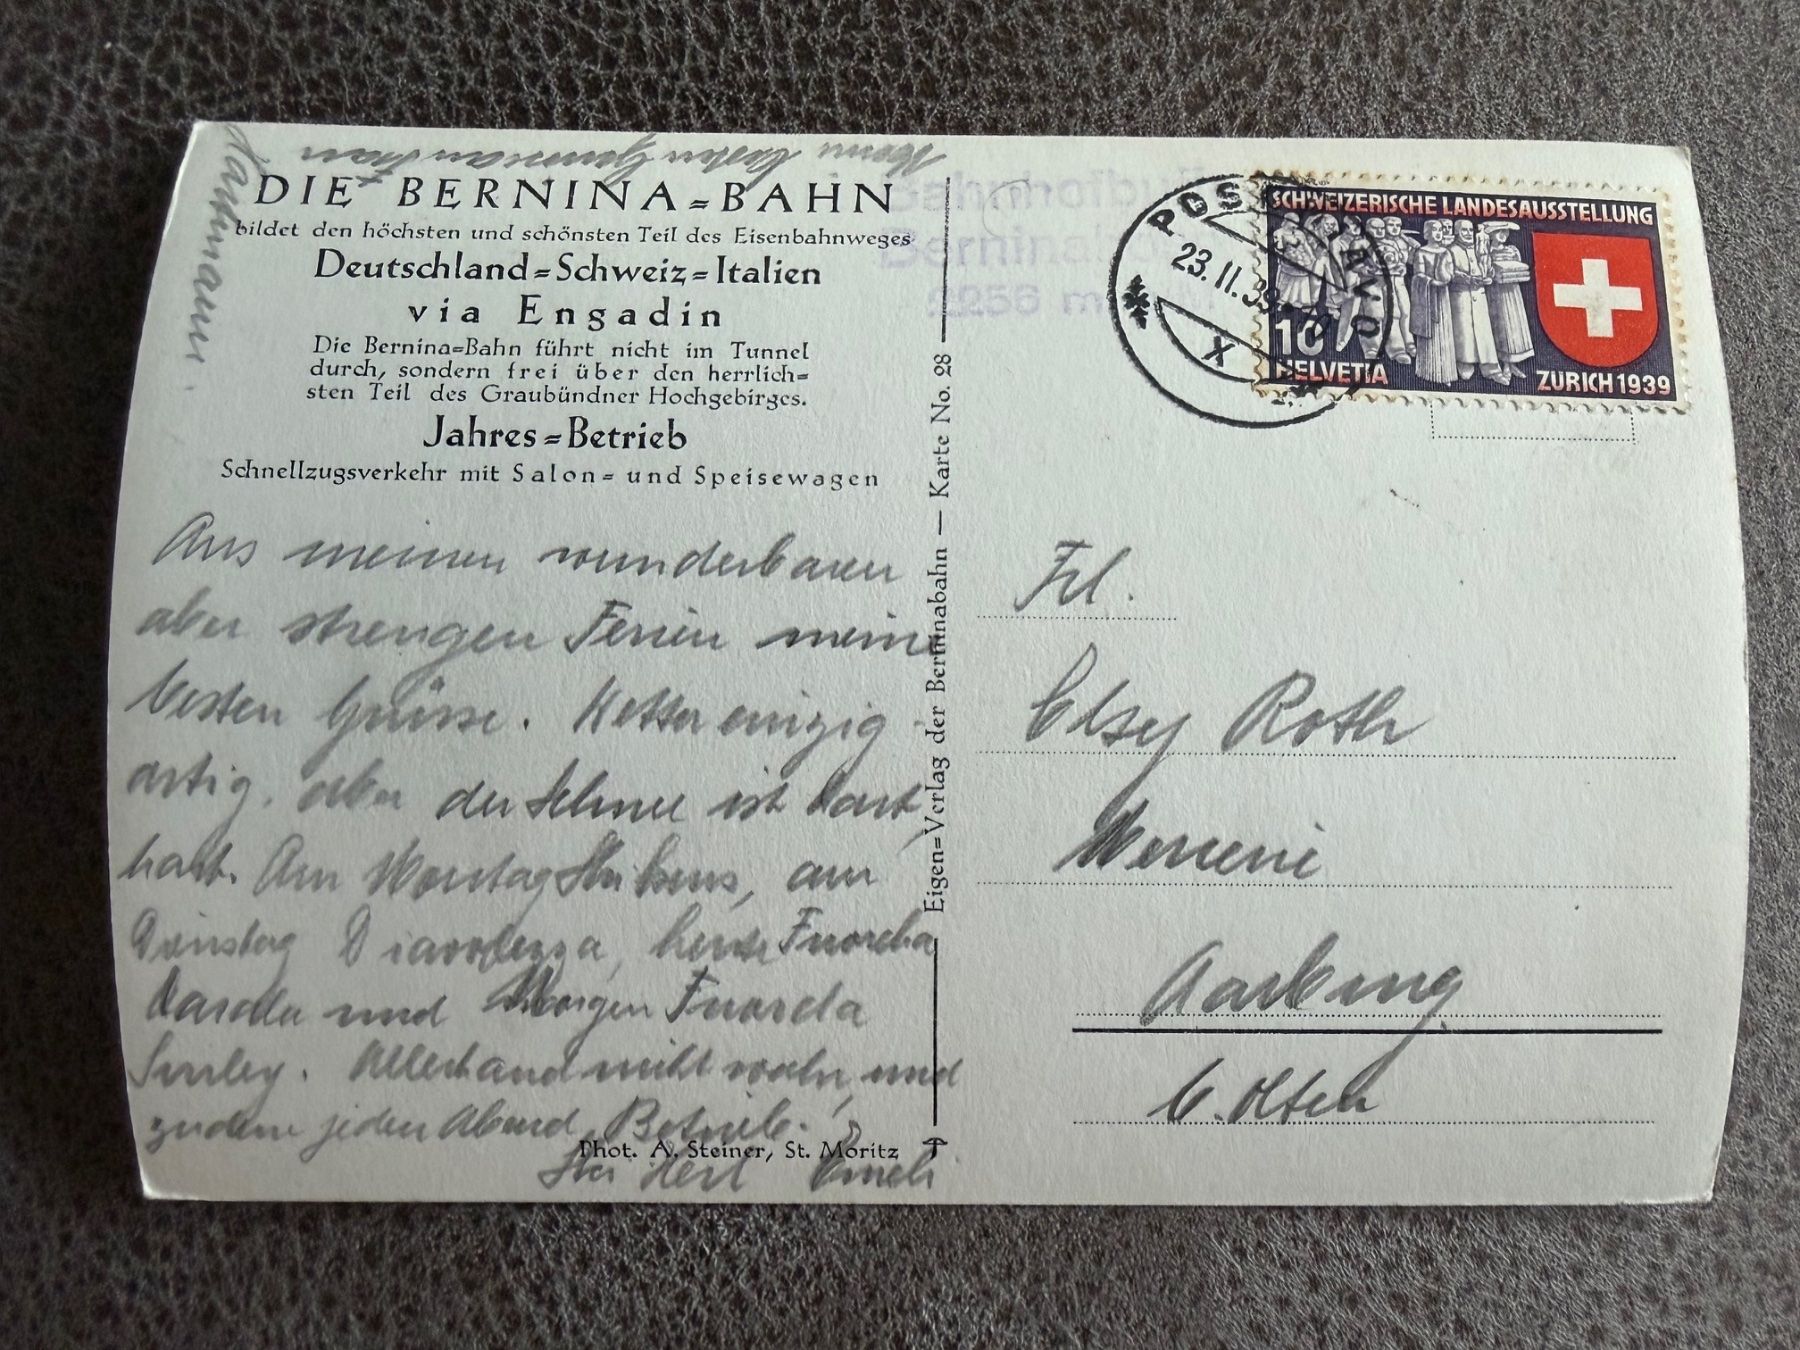 DIE BERNINA=BAHN
bildet den höchsten und schönsten Teil des Eisenbahnweges
Deutschland=Schweiz=Italien
via Engadin
Die Bernina=Bahn führt nicht im Tunnel
durch, sondern frei über den herrlich=
sten Teil des Graubündner Hochgebirges.
Jahres=Betrieb
Schnellzugsverkehr mit Salon= und Speisewagen
Aus meinen wunderbaren
aber strengen Ferien meine
besten Grüsse. Wetter einzig-
artig, aber der Schnee ist
hart. Am am
Dienstag Diavolezza, heute Fuorcla
und Morgen Fuorcla
Surley. Allerhand nicht wahr, und
zudem jeden Abend Betrieb.!
Emeli
Phot. A. Steiner, St. Moritz
Eigen=Verlag der Berninabahn — Karte No. 28
Bahnhofbuffet
Bernina
2256 m
POST
23.II.39
X
SCHWEIZERISCHE LANDESAUSSTELLUNG
10
HELVETIA
ZÜRICH 1939
Frl.
Elsy Roth
Aarburg
b. Olten